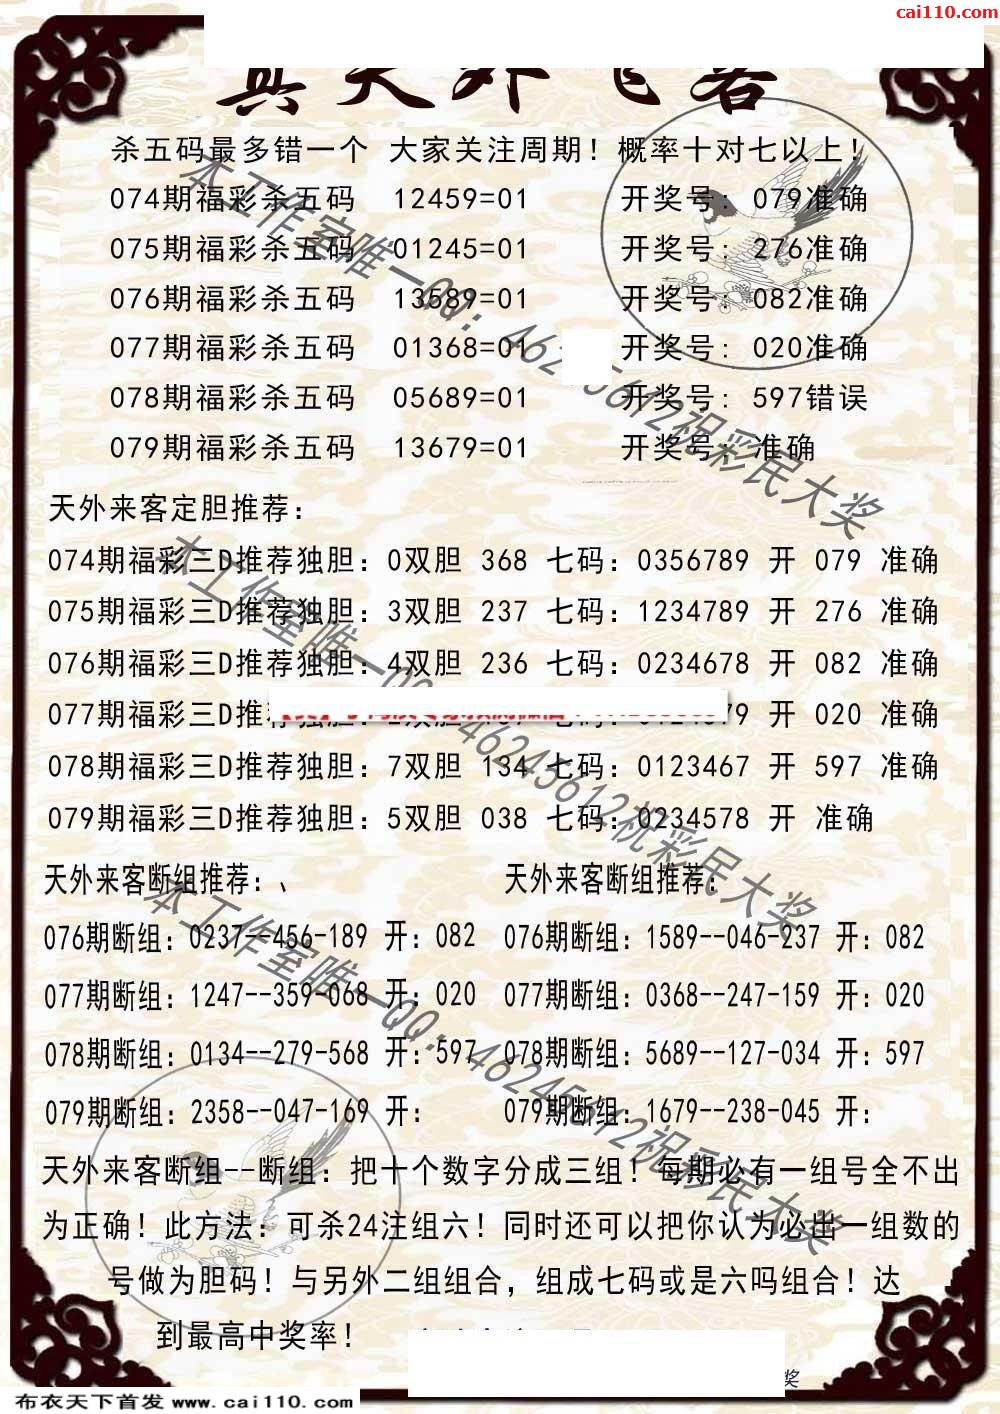 cai110.com
真天外飞客
杀五码最多错一个 大家关注周期！概率十对七以上！
074期福彩杀五码 12459=01 开奖号：079准确
075期福彩杀五码 01245=01 开奖号：276准确
076期福彩杀五码 13589=01 开奖号：082准确
077期福彩杀五码 01368=01 开奖号：020准确
078期福彩杀五码 05689=01 开奖号：597错误
079期福彩杀五码 13679=01 开奖号：准确
本工作室唯一QQ：46245612祝彩民大奖
天外来客定胆推荐：
074期福彩三D推荐独胆：0双胆 368 七码：0356789 开 079 准确
075期福彩三D推荐独胆：3双胆 237 七码：1234789 开 276 准确
076期福彩三D推荐独胆：4双胆 236 七码：0234678 开 082 准确
077期福彩三D推荐独胆： 79 开 020 准确
078期福彩三D推荐独胆：7双胆 134 七码：0123467 开 597 准确
079期福彩三D推荐独胆：5双胆 038 七码：0234578 开 准确
本工作室唯一QQ：46245612祝彩民大奖
天外来客断组推荐：、 天外来客断组推荐：
076期断组：0237--456-189 开：082 076期断组：1589--046-237 开：082
077期断组：1247--359-068 开：020 077期断组：0368--247-159 开：020
078期断组：0134--279-568 开：597 078期断组：5689--127-034 开：597
079期断组：2358--047-169 开： 079期断组：1679--238-045 开：
本工作室唯一QQ：46245612祝彩民大奖
天外来客断组--断组：把十个数字分成三组！每期必有一组号全不出
为正确！此方法：可杀24注组六！同时还可以把你认为必出一组数的
号做为胆码！与另外二组组合，组成七码或是六吗组合！达
到最高中奖率！
奖
布衣天下首发 www.cai110.com